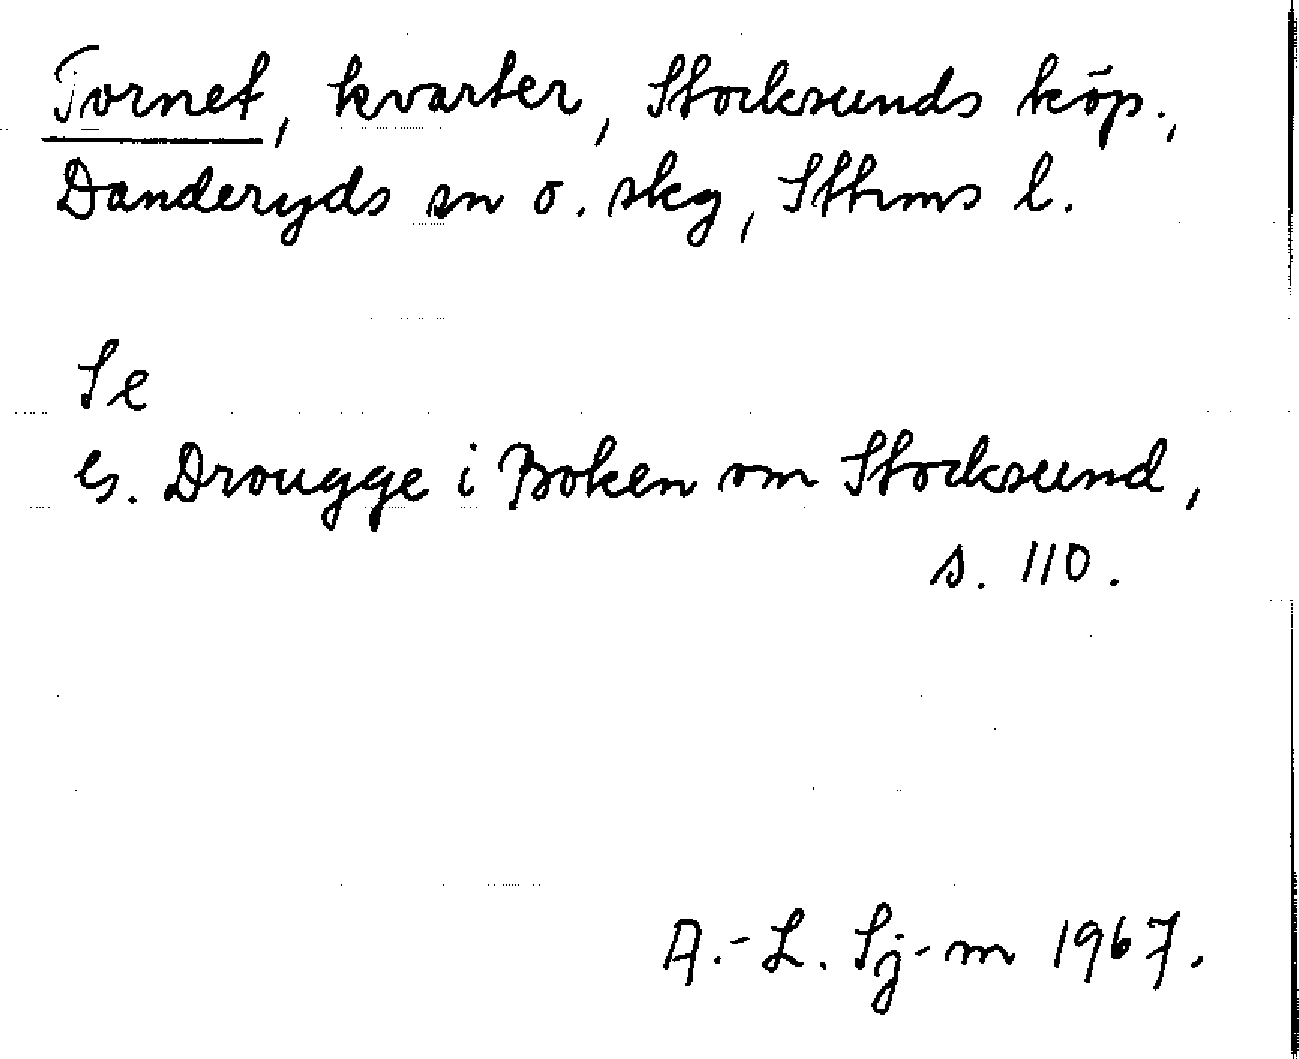 Tornet, kvarter, Stocksunds köp.,
Danderyds sn o. skg, Sthms l.
Se
G. Drougge i Boken om Stocksund,
s. 110.
A.-L. Sj-m 1967.